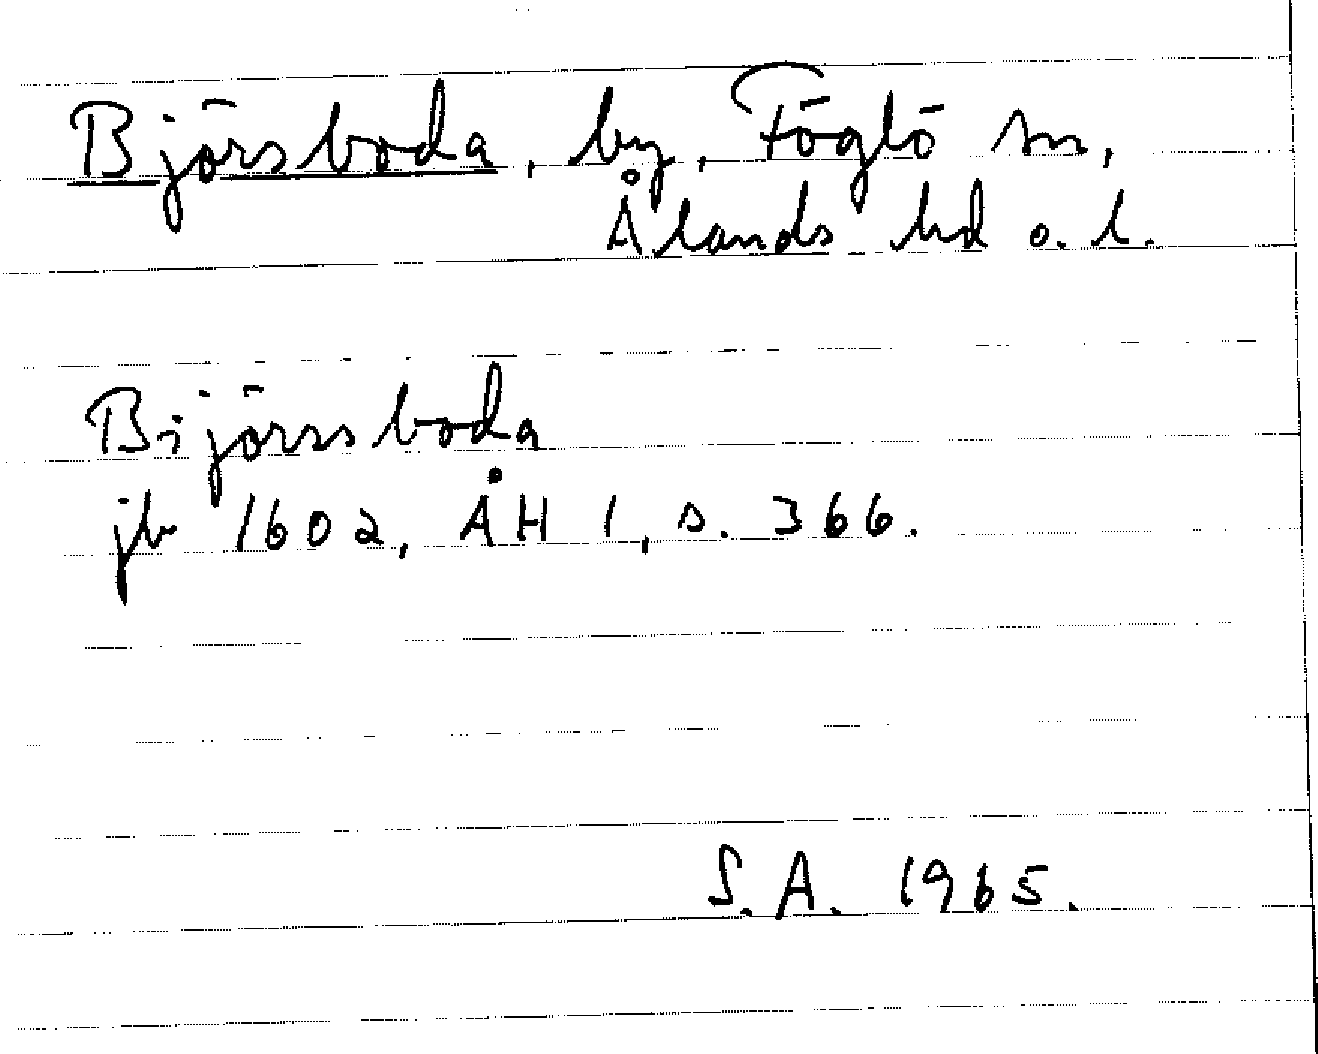 Björsboda, by, Föglö sn,
Ålands hd o. l.
Bijörssboda
jb 1602, ÅH 1, s. 366.
S.A. 1965.